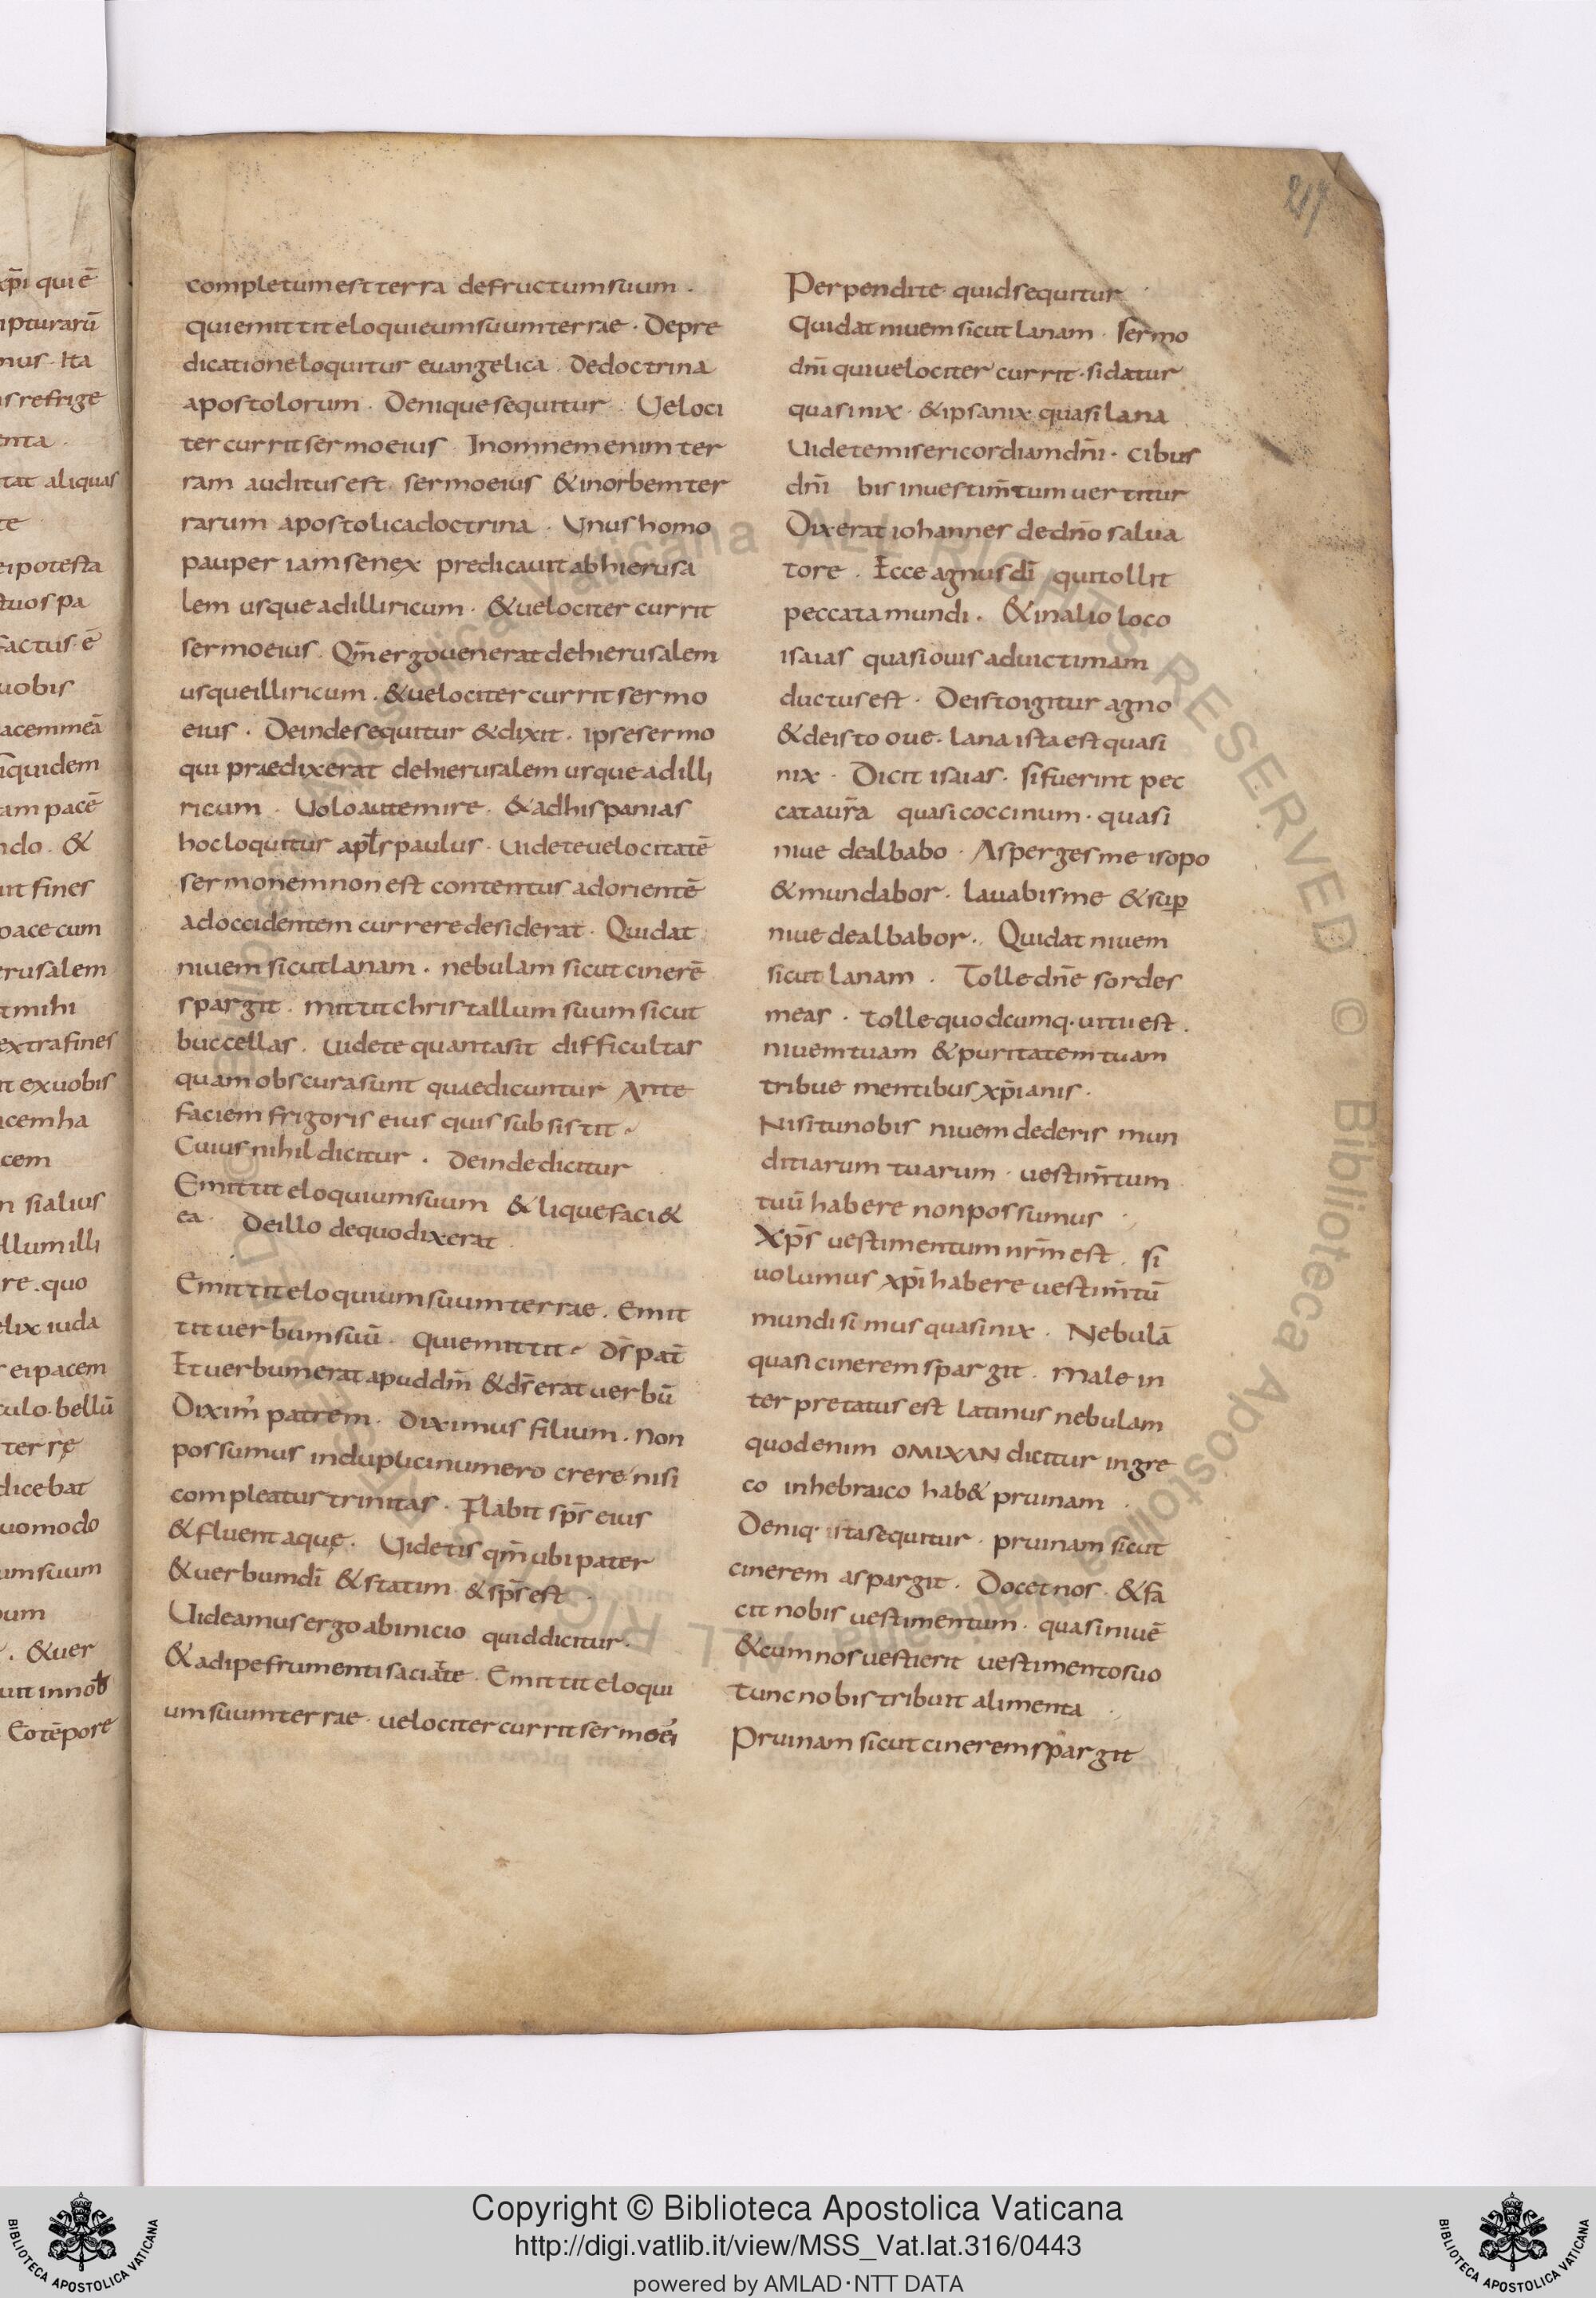 217
xp̄i qui ē
ipturarū
nus · Ita
as refrige
enta ·
tat aliquas
te
ei potesta
tuos pa
factus ē
uobis
acem meā
quidem
am pacē
ndo · &
uit fines
pace cum
erusalem
t mihi
extra fines
it ex uobis
acem ha
cem
n si alius
llum illi
re · quo
elix iuda
r ei pacem
culo · bellū
terrę
dicebat
uomodo
um suum
bum
· & uer
uit in nob
Eo tēpore
completum est terra de fructum suum ·
qui emittit eloquieum suum terrae · De pre
dicatione loquitur euangelica · De doctrina
apostolorum · Denique sequitur · Ueloci
ter currit sermo eius · In omnem enim ter
ram auditus est sermo eius & in orbem ter
rarum apostolica doctrina · Unus homo
pauper iam senex predicauit ab hierusa
lem usque ad illiricum · & uelociter currit
sermo eius · Qm̄ ergo uenerat de hierusalem
usque illiricum · & uelociter currit sermo
eius · Deinde sequitur & dixit · ipse sermo
qui praedixerat de hierusalem usque ad illi
ricum · Uolo autem ire · & ad hispanias
hoc loquitur apl̄s paulus · Uidete uelocitatē
sermonem non est contentus ad orientē
ad occidentem currere desiderat · Qui dat
niuem sicut lanam · nebulam sicut cinerē
spargit · mittit christallum suum sicut
buccellas · Uidete quanta sit difficultas
quam obscura sunt quae dicuntur Ante
faciem frigoris eius quis subsistit ·
Cuius nihil dicitur · Deinde dicitur
Emittit eloquium suum & liquefaci&
ea · De illo de quo dixerat
Emittit eloquium suum terrae · Emit
tit uerbum suū · qui emittit · dr̄ pat̄
Et uerbum erat apud dm̄ & ds̄ erat uerbū
Dixim̓ patrem · diximus filium · non
possumus in duplici numero crere nisi
compleatur trinitas · Flabit sps̄ eius
& fluent aquę · Uidetis qm̄ ubi pater
& uerbum dī & statim & sps̄ est ·
Uideamus ergo ab inicio quid dicitur ·
& adipe frumenti saciat te · Emittit eloqui
um suum terrae · uelociter currit sermo ei̓
Perpendite quid sequitur ·
Qui dat niuem sicut lanam · Sermo
dn̄i qui uelociter currit · si datur
quasi nix · & ipsa nix quasi lana
Uidete misericordiam dn̄i · cibus
dn̄i bis in uestim̄tum uertitur
Dixerat iohannes de dn̄o salua
tore · Ecce agnus dī qui tollit
peccata mundi · & in alio loco
isaias quasi ouis ad uictimam
ductus est · De isto igitur agno
& de isto oue · lana ista est quasi
nix · Dicit isaias · si fuerint pec
cata ur̄a quasi coccinum · quasi
niue dealbabo · Asperges me isopo
& mundabor · lauabis me & sup̱
niue dealbabor · Qui dat niuem
sicut lanam · Tolle dn̄e sordes
meas · tolle quodcumq· uitii est ·
niuem tuam & puritatem tuam
tribue mentibus xp̄ianis ·
Nisi tu nobis niuem dederis mun
ditiarum tuarum · uestim̄tum
tuū habere non possumus ·
Xps̄ uestimentum nr̄m est · si
uolumus xp̄i habere uestim̄tū
mundi simus quasi nix · Nebulā
quasi cinerem spargit · Male in
terpretatus est latinus nebulam
quod enim OMIXAN dicitur in gre
co in hebraico hab& pruinam ·
Deniq· ista sequitur · pruinam sicut
cinerem aspargit · Docet nos · & fa
cit nobis uestimentum · quasi niuē
& cum nos uestierit uestimento suo
tunc nobis tribuit alimenta ·
Pruinam sicut cinerem spargit
© Biblioteca Apostolica Vaticana ALL RIGHTS RESERVED
Copyright © Biblioteca Apostolica Vaticana
http://digi.vatlib.it/view/MSS_Vat.lat.316/0443
powered by AMLAD·NTT DATA
BIBLIOTECA APOSTOLICA VATICANA
BIBLIOTECA APOSTOLICA VATICANA